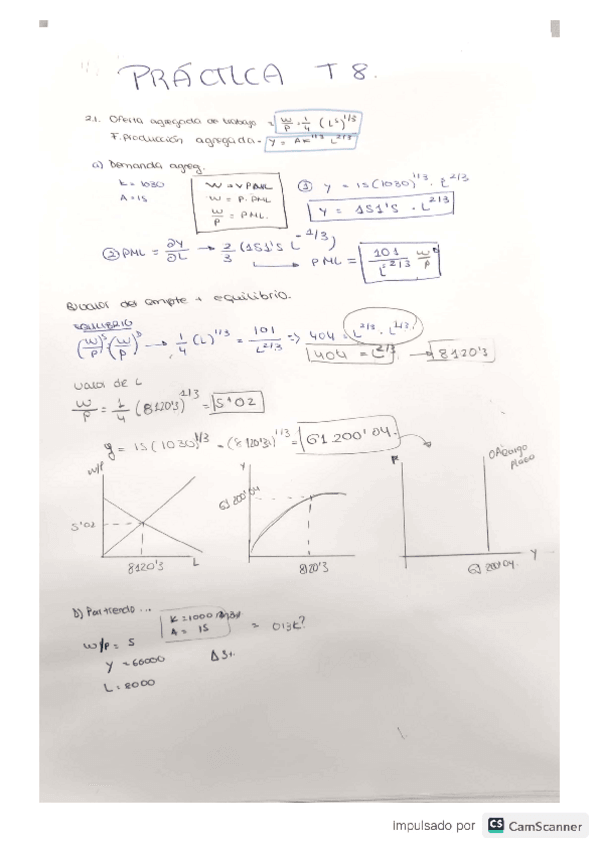 PRÁCTICA T 8.
2.1. Oferta agregada de trabajo = W/P = 1/4 (L^s)^1/3
F. producción agregada = Y = AK^1/3 L^2/3
a) Demanda agreg.
K = 1030
A = 15
W = VPML
W = P. PML
W/P = PML.
① Y = 15(1030)^1/3 · L^2/3
Y = 151'5 · L^2/3
② PML = ∂Y/∂L → 2/3 (151'5 L^-1/3)
→ PML = 101/L^2/3 W/P
equilibrio.
EQUILIBRIO
(W/P)^S = (W/P)^D → 1/4 (L)^1/3 = 101/L^2/3 => 404 = L^2/3
404 = L^2/3 → 8120'3
Valor de L
W/P = 1/4 (8120'3)^1/3 = 5'02
y = 15 (1030)^1/3 - (8120'3)^1/3 = 61200'04.
W/P
5'02
8120'3
L
Y
61200'04
8120'3
P
OA largo plazo
61200'04.
Y
b) Partiendo ...
W/P = 5
Y = 60000
L = 8000
K = 1000
A = 15